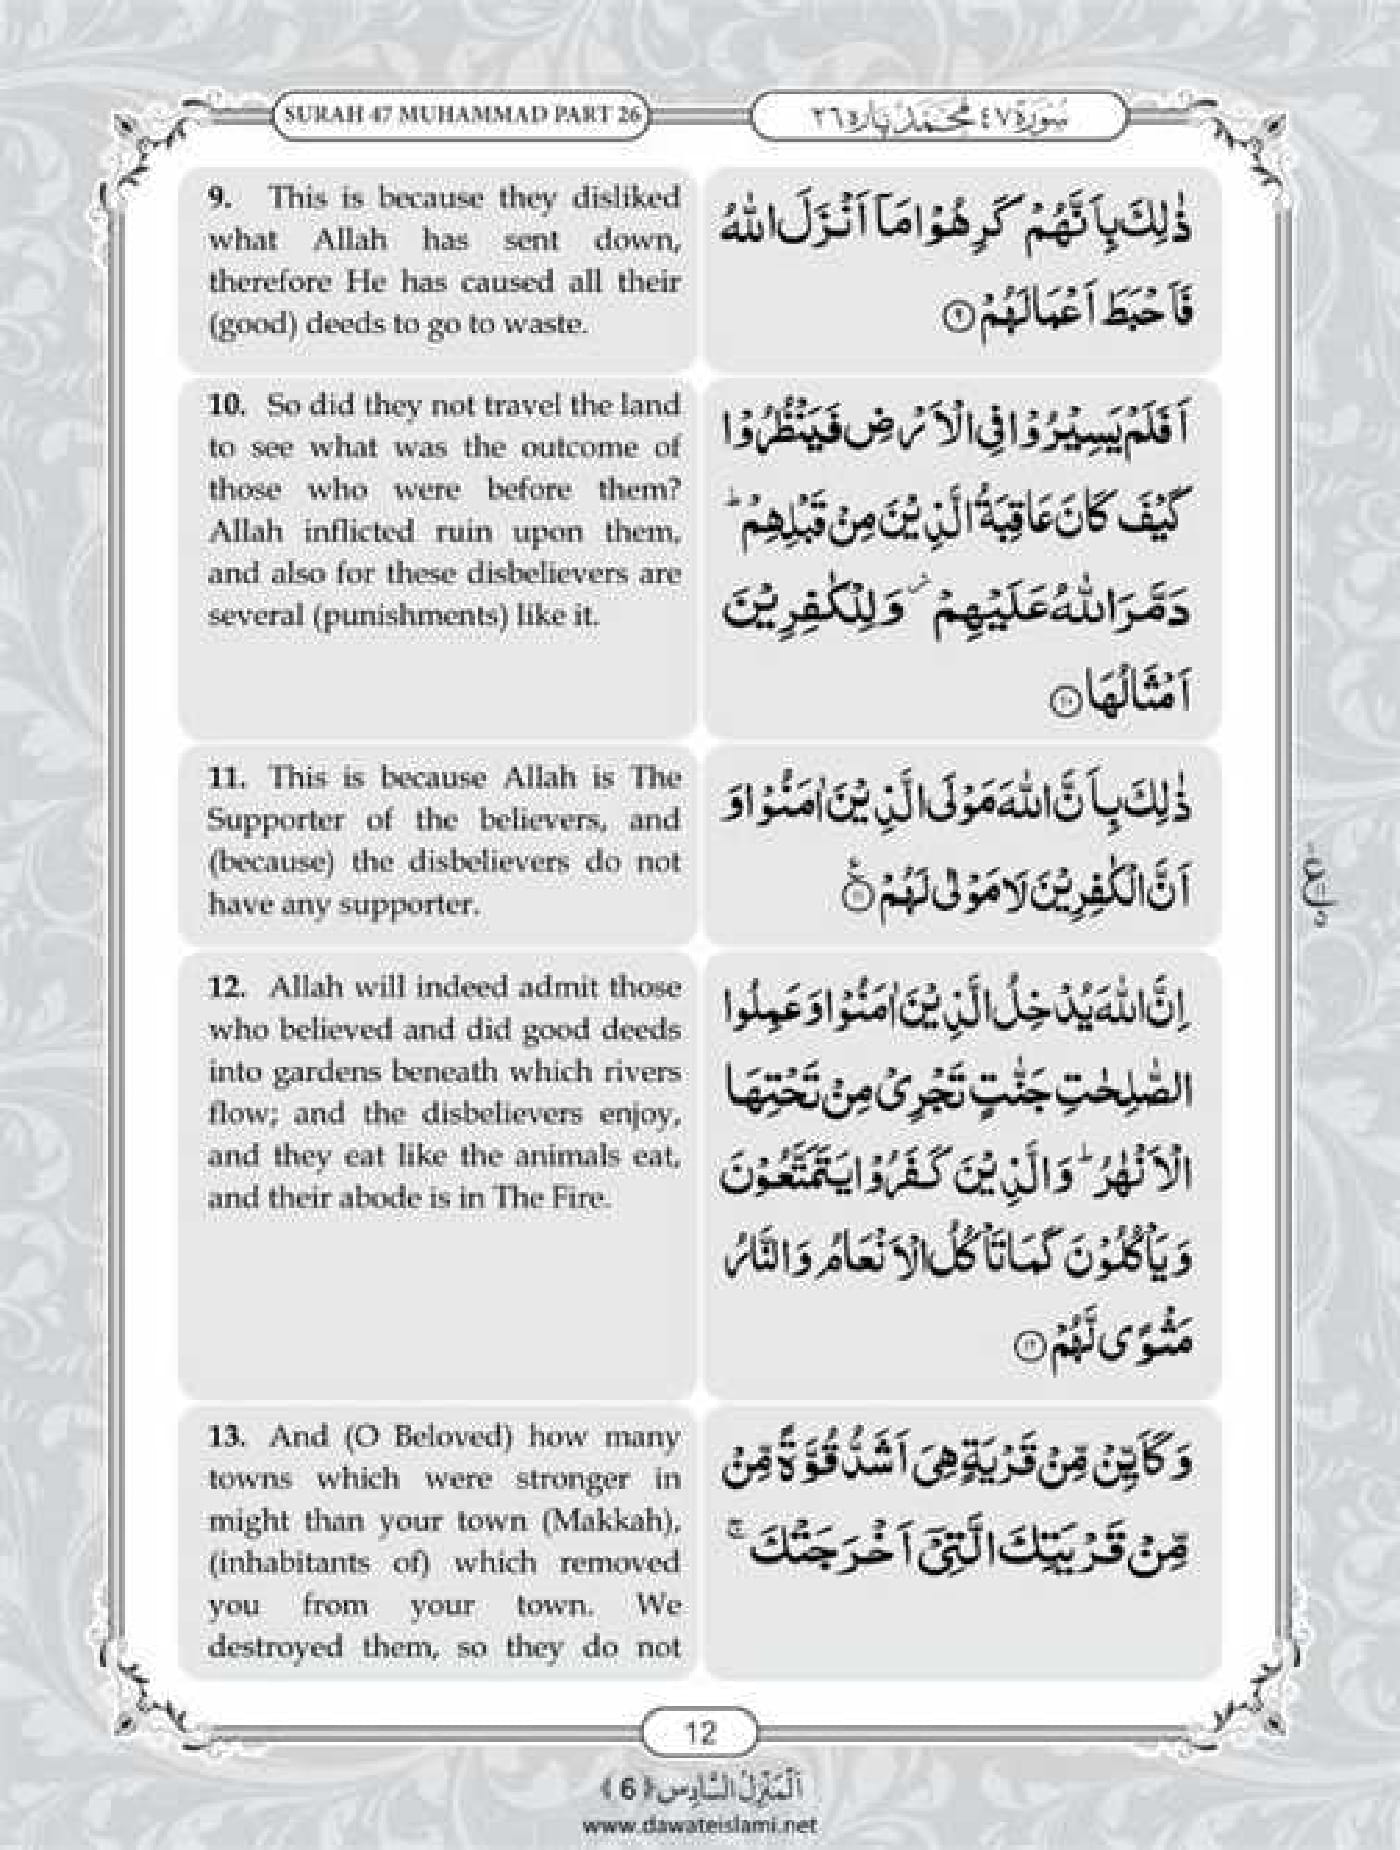 SURAH 47 MUHAMMAD PART 26
سُوْرَة ٤٧ مُحَمَّد پاره ٢٦
9. This is because they disliked
what Allah has sent down,
therefore He has caused all their
(good) deeds to go to waste.
ذٰلِكَ بِاَنَّهُمْ كَرِهُوْا مَاۤ اَنْزَلَ اللّٰهُ
فَاَحْبَطَ اَعْمَالَهُمْ ۝۹
10. So did they not travel the land
to see what was the outcome of
those who were before them?
Allah inflicted ruin upon them,
and also for these disbelievers are
several (punishments) like it.
اَفَلَمْ يَسِيْرُوْا فِى الْاَرْضِ فَيَنْظُرُوْا
كَيْفَ كَانَ عَاقِبَةُ الَّذِيْنَ مِنْ قَبْلِهِمْ ؕ
دَمَّرَ اللّٰهُ عَلَيْهِمْ ؗ وَ لِلْكٰفِرِيْنَ
اَمْثَالُهَا ۝۱۰
11. This is because Allah is The
Supporter of the believers, and
(because) the disbelievers do not
have any supporter.
ذٰلِكَ بِاَنَّ اللّٰهَ مَوْلَى الَّذِيْنَ اٰمَنُوْا وَ
اَنَّ الْكٰفِرِيْنَ لَا مَوْلٰى لَهُمْ ۝۱۱
12. Allah will indeed admit those
who believed and did good deeds
into gardens beneath which rivers
flow; and the disbelievers enjoy,
and they eat like the animals eat,
and their abode is in The Fire.
اِنَّ اللّٰهَ يُدْخِلُ الَّذِيْنَ اٰمَنُوْا وَ عَمِلُوا
الصّٰلِحٰتِ جَنّٰتٍ تَجْرِىْ مِنْ تَحْتِهَا
الْاَنْهٰرُ ؕ وَ الَّذِيْنَ كَفَرُوْا يَتَمَتَّعُوْنَ
وَ يَاْكُلُوْنَ كَمَا تَاْكُلُ الْاَنْعَامُ وَ النَّارُ
مَثْوًى لَّهُمْ ۝۱۲
13. And (O Beloved) how many
towns which were stronger in
might than your town (Makkah),
(inhabitants of) which removed
you from your town. We
destroyed them, so they do not
وَ كَاَيِّنْ مِّنْ قَرْيَةٍ هِىَ اَشَدُّ قُوَّةً مِّنْ
مِّنْ قَرْيَتِكَ الَّتِىْۤ اَخْرَجَتْكَ ۚ
12
اَلْمَنْزِلُ السَّادِس ﴿6﴾
www.dawateislami.net